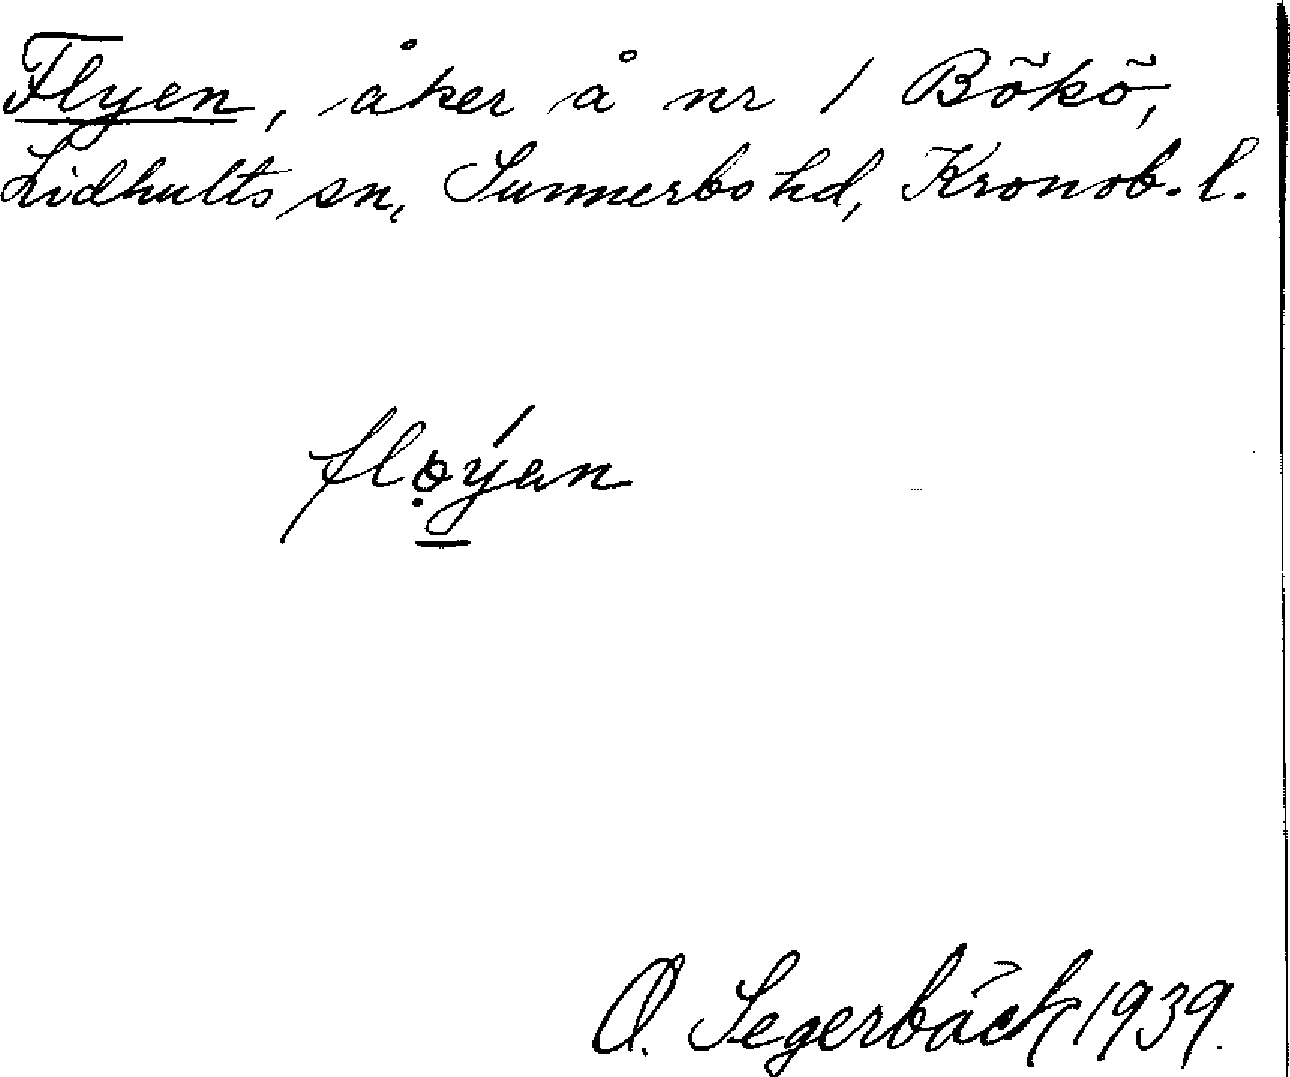 Flyen, åker å nr 1 Bökö,
Lidhults sn, Sunnerbo hd, Kronob. l.
fløýen
O. Segerbäck 1939.